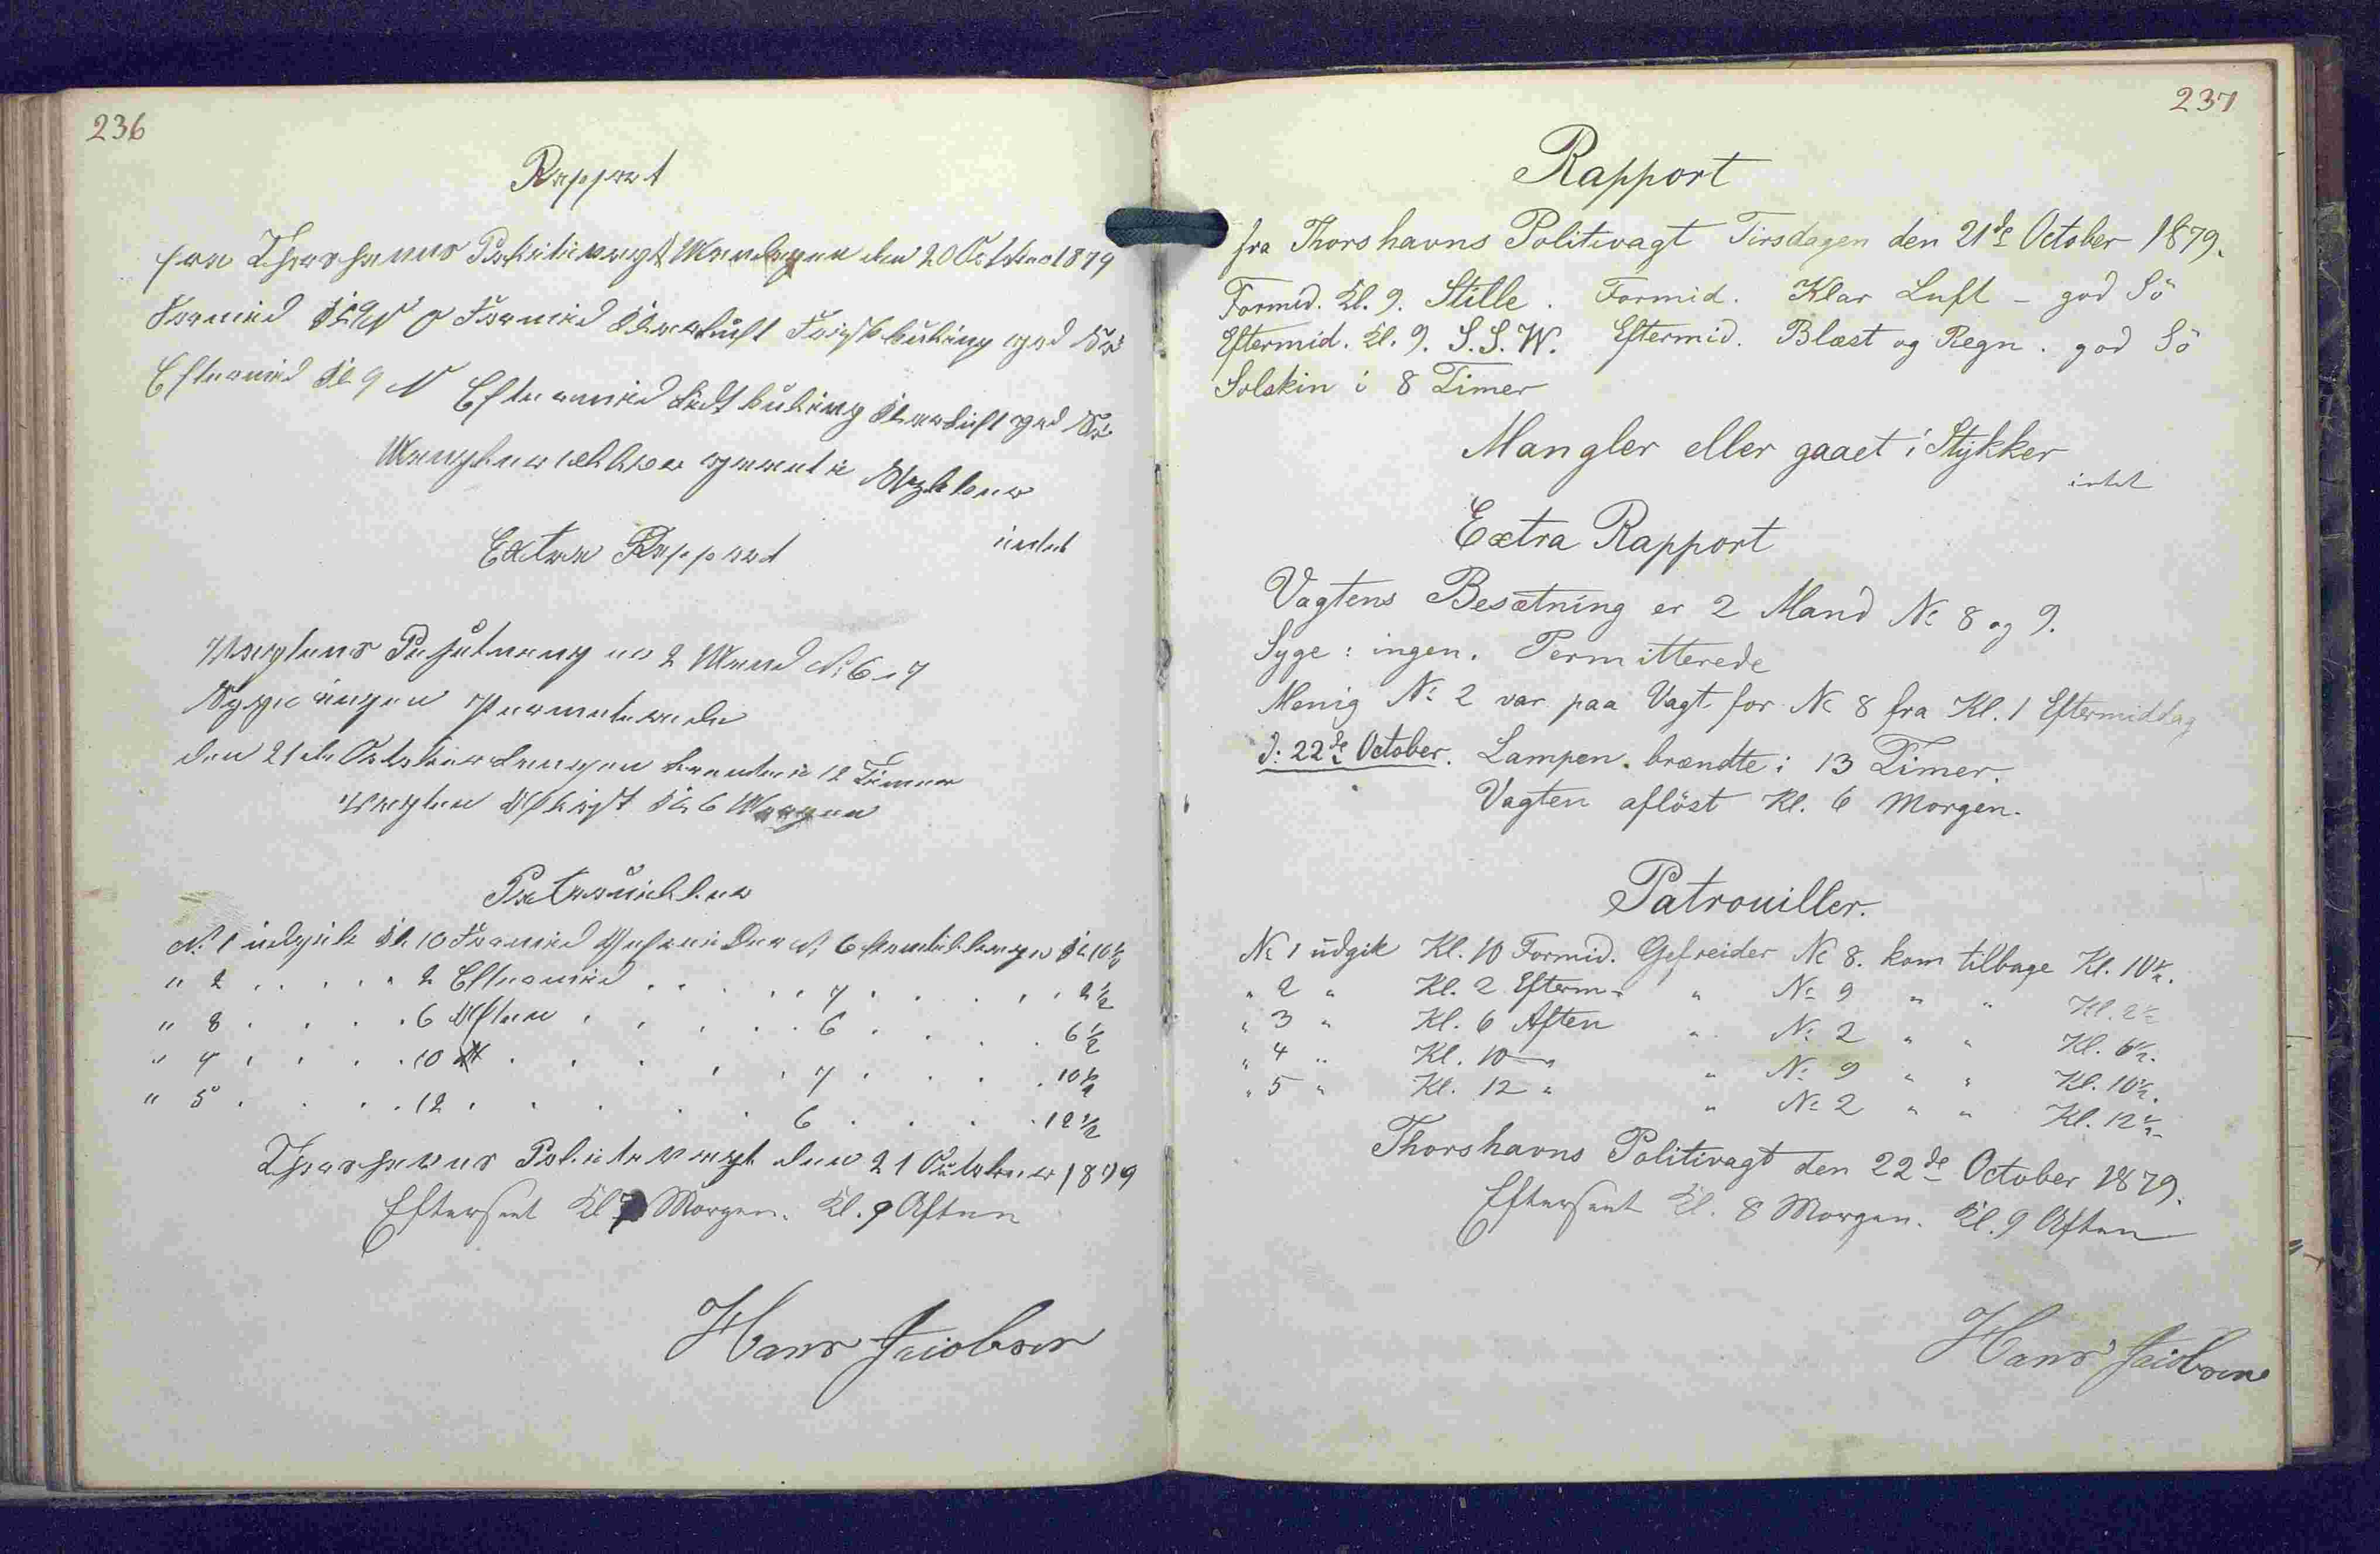 236
Rapport
fra Thorshavns Politivagt Mandagen den 20 October 1879
Formid Kl 9 N O Formid Klarluft Frisk kuling god Sö
Eftermid Kl 9 N Eftermid Lidt kuling Klarluft god Sö
Mangler eller gaaet i Stykker
intet
Extra Rapport
Vagtens Besetneng er 2 Mand No 6 o 7
Syge ingen Permeterede
den 21de October Lampen brente i 12 Timer
Vagten Aflöst Kl 6 Morgen
Patrouiller
No 1 udgik Kl. 10 Formid Gefreider No 6 kom tilbage Kl 10½
" 2 . . . . 2 Eftermid . . . . . 7 . . . . 2½
" 3 . . . . 6 Aften . . . . . 6 . . . . 6½
" 4 . . . . 10 . . . . . 7 . . . . 10½
" 5 . . . . 12 . . . . . 6 . . . . 12½
Thorshavns Politevagt den 21 October 1879
Efterseet Kl 7 Morgen. Kl. 9 Aften
Hans Jacobsen
237
Rapport
fra Thorshavns Politivagt Tirsdagen den 21de October 1879.
Formid. Kl. 9. Stille. Formid. Klar Luft - god Sö
Eftermid. Kl. 9. S.S.W. Eftermid. Blæst og Regn. god Sö
Solskin i 8 Timer
Mangler eller gaaet i Stykker
intet
Extra Rapport
Vagtens Besætning er 2 Mand No 8 og 9.
Syge: ingen. Permitterede
Menig No 2 var paa Vagt for No 8 fra Kl. 1 Eftermiddag
d: 22de October. Lampen brændte i 13 Timer.
Vagten aflöst Kl. 6 Morgen.
Patrouiller.
No 1 udgik Kl. 10 Formid. Gefreider No 8. kom tilbage Kl. 10½.
" 2 " Kl. 2 Efterm. " No 9 " " Kl. 2½
" 3 " Kl. 6 Aften " No 2 " " Kl. 6½.
" 4 " Kl. 10 " " No 9 " " Kl. 10½.
" 5 " Kl. 12 " " No 2 " " Kl. 12½.
Thorshavns Politivagt den 22de October 1879.
Efterseet Kl. 8 Morgen. Kl. 9 Aften
Hans Jacobsen